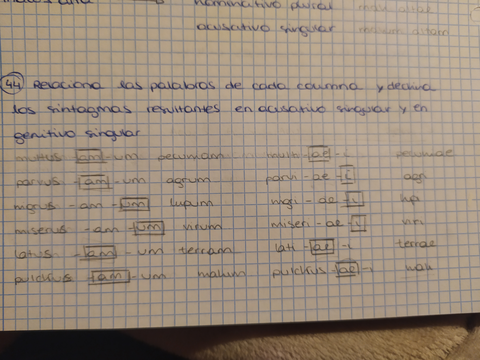 nominativo plural
acusativo singular
44 Relaciona las palabras de cada columna y declina
los sintagmas resultantes en acusativo singular y en
genitivo singular
multus - am - um pecuniam multi - ae - i pecuniae
parvus - am - um agrum parvi - ae - i agri
nigrus - am - um lupum nigri - ae - i lupi
miserus - am - um virum miseri - ae - i viri
latus - am - um terram lati - ae - i terrae
pulchrus - am - um malum pulchrus - ae - i mali